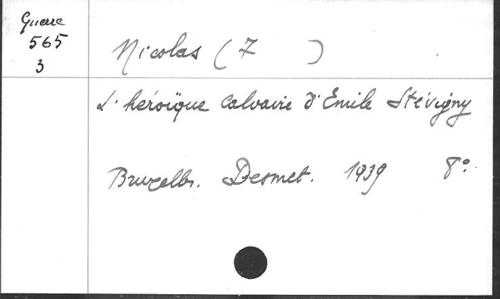 Guerre
565
3
Nicolas (7 )
L'héroïque Calvaire d'Emile Stévigny
Bruxelles. Desmet. 1939 8°.